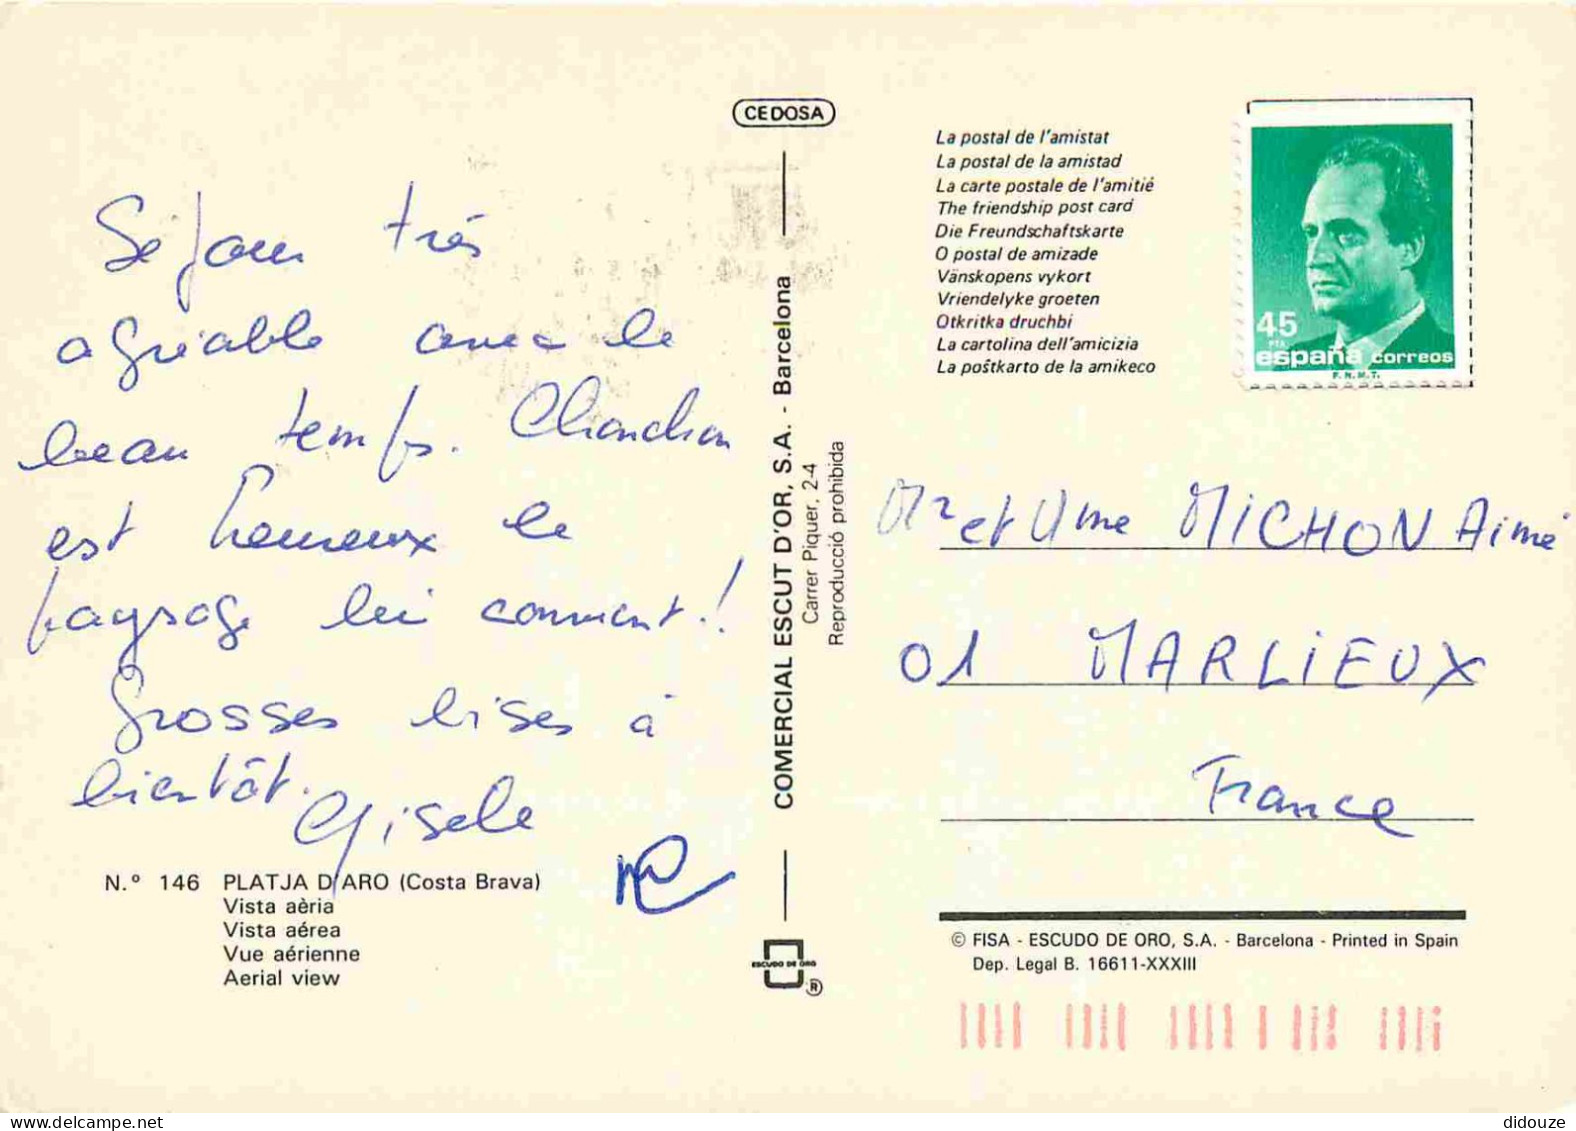 CEDOSA
Séjour très
agréable avec le
beau temps. Chouchou
est heureux le
paysage lui convient!
Grosses bises à
bientôt.
Gisele
N.º 146 PLATJA D'ARO (Costa Brava)
Vista aèria
Vista aérea
Vue aérienne
Aerial view
COMERCIAL ESCUT D'OR, S.A. - Barcelona
Carrer Piquer, 2-4
Reproducció prohibida
ESCUDO DE ORO
®
La postal de l'amistat
La postal de la amistad
La carte postale de l'amitié
The friendship post card
Die Freundschaftskarte
O postal de amizade
Vänskopens vykort
Vriendelyke groeten
Otkritka druchbi
La cartolina dell'amicizia
La poŝtkarto de la amikeco
45
PTA
españa correos
F.N.M.T.
Mr et Mme MICHON Aimé
01 MARLIEUX
France
© FISA - ESCUDO DE ORO, S.A. - Barcelona - Printed in Spain
Dep. Legal B. 16611-XXXIII
didouze